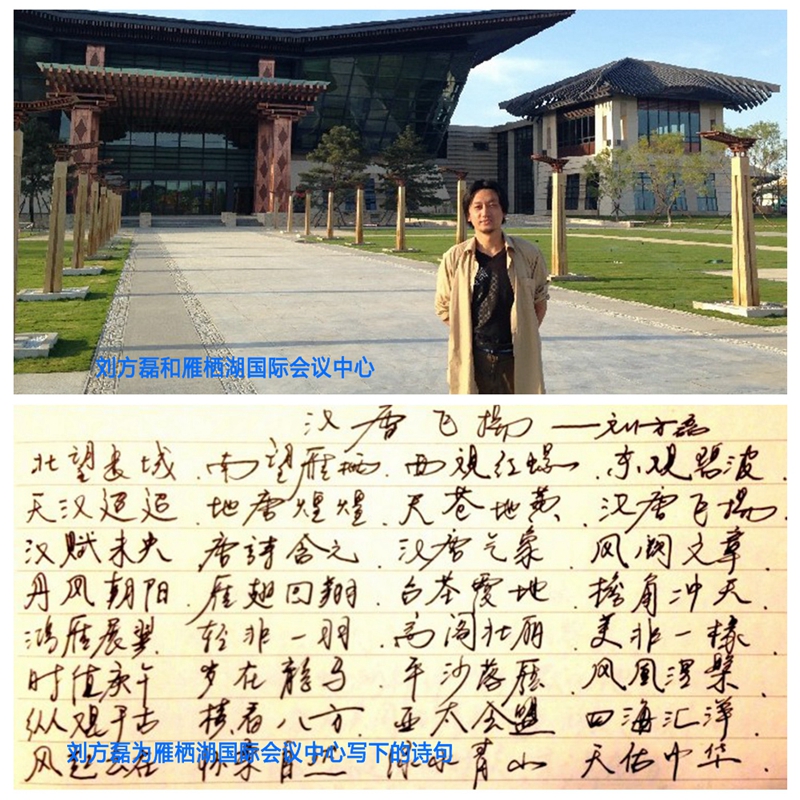 刘方磊和雁栖湖国际会议中心
汉唐飞扬 ——刘方磊
北望长城.南望雁栖.西视红螺.东观碧波.
天汉迢迢.地唐煌煌.天苍地黄.汉唐飞扬.
汉赋未央 唐詩含元.汉唐气象.风润文章.
丹凤朝阳.雁翅回翔.台基覆地.檐角冲天.
鸿雁展翼.轻非一羽.高阁壮丽.美非一椽.
时值庚午 岁在龍马.平沙落雁.凤凰涅槃.
纵观千古 横看八方.亚太会盟 四海汇洋.
刘方磊为雁栖湖国际会议中心写下的诗句
风起 自然 青山 天佑中华.